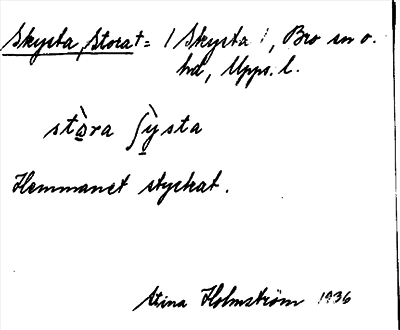 Skysta, Stora† = | Skysta |, Bro sn o.
hd, Upps. l.
stò̱ra ʃỳ̱sta
Hemmanet styckat.
Stina Holmström 1936